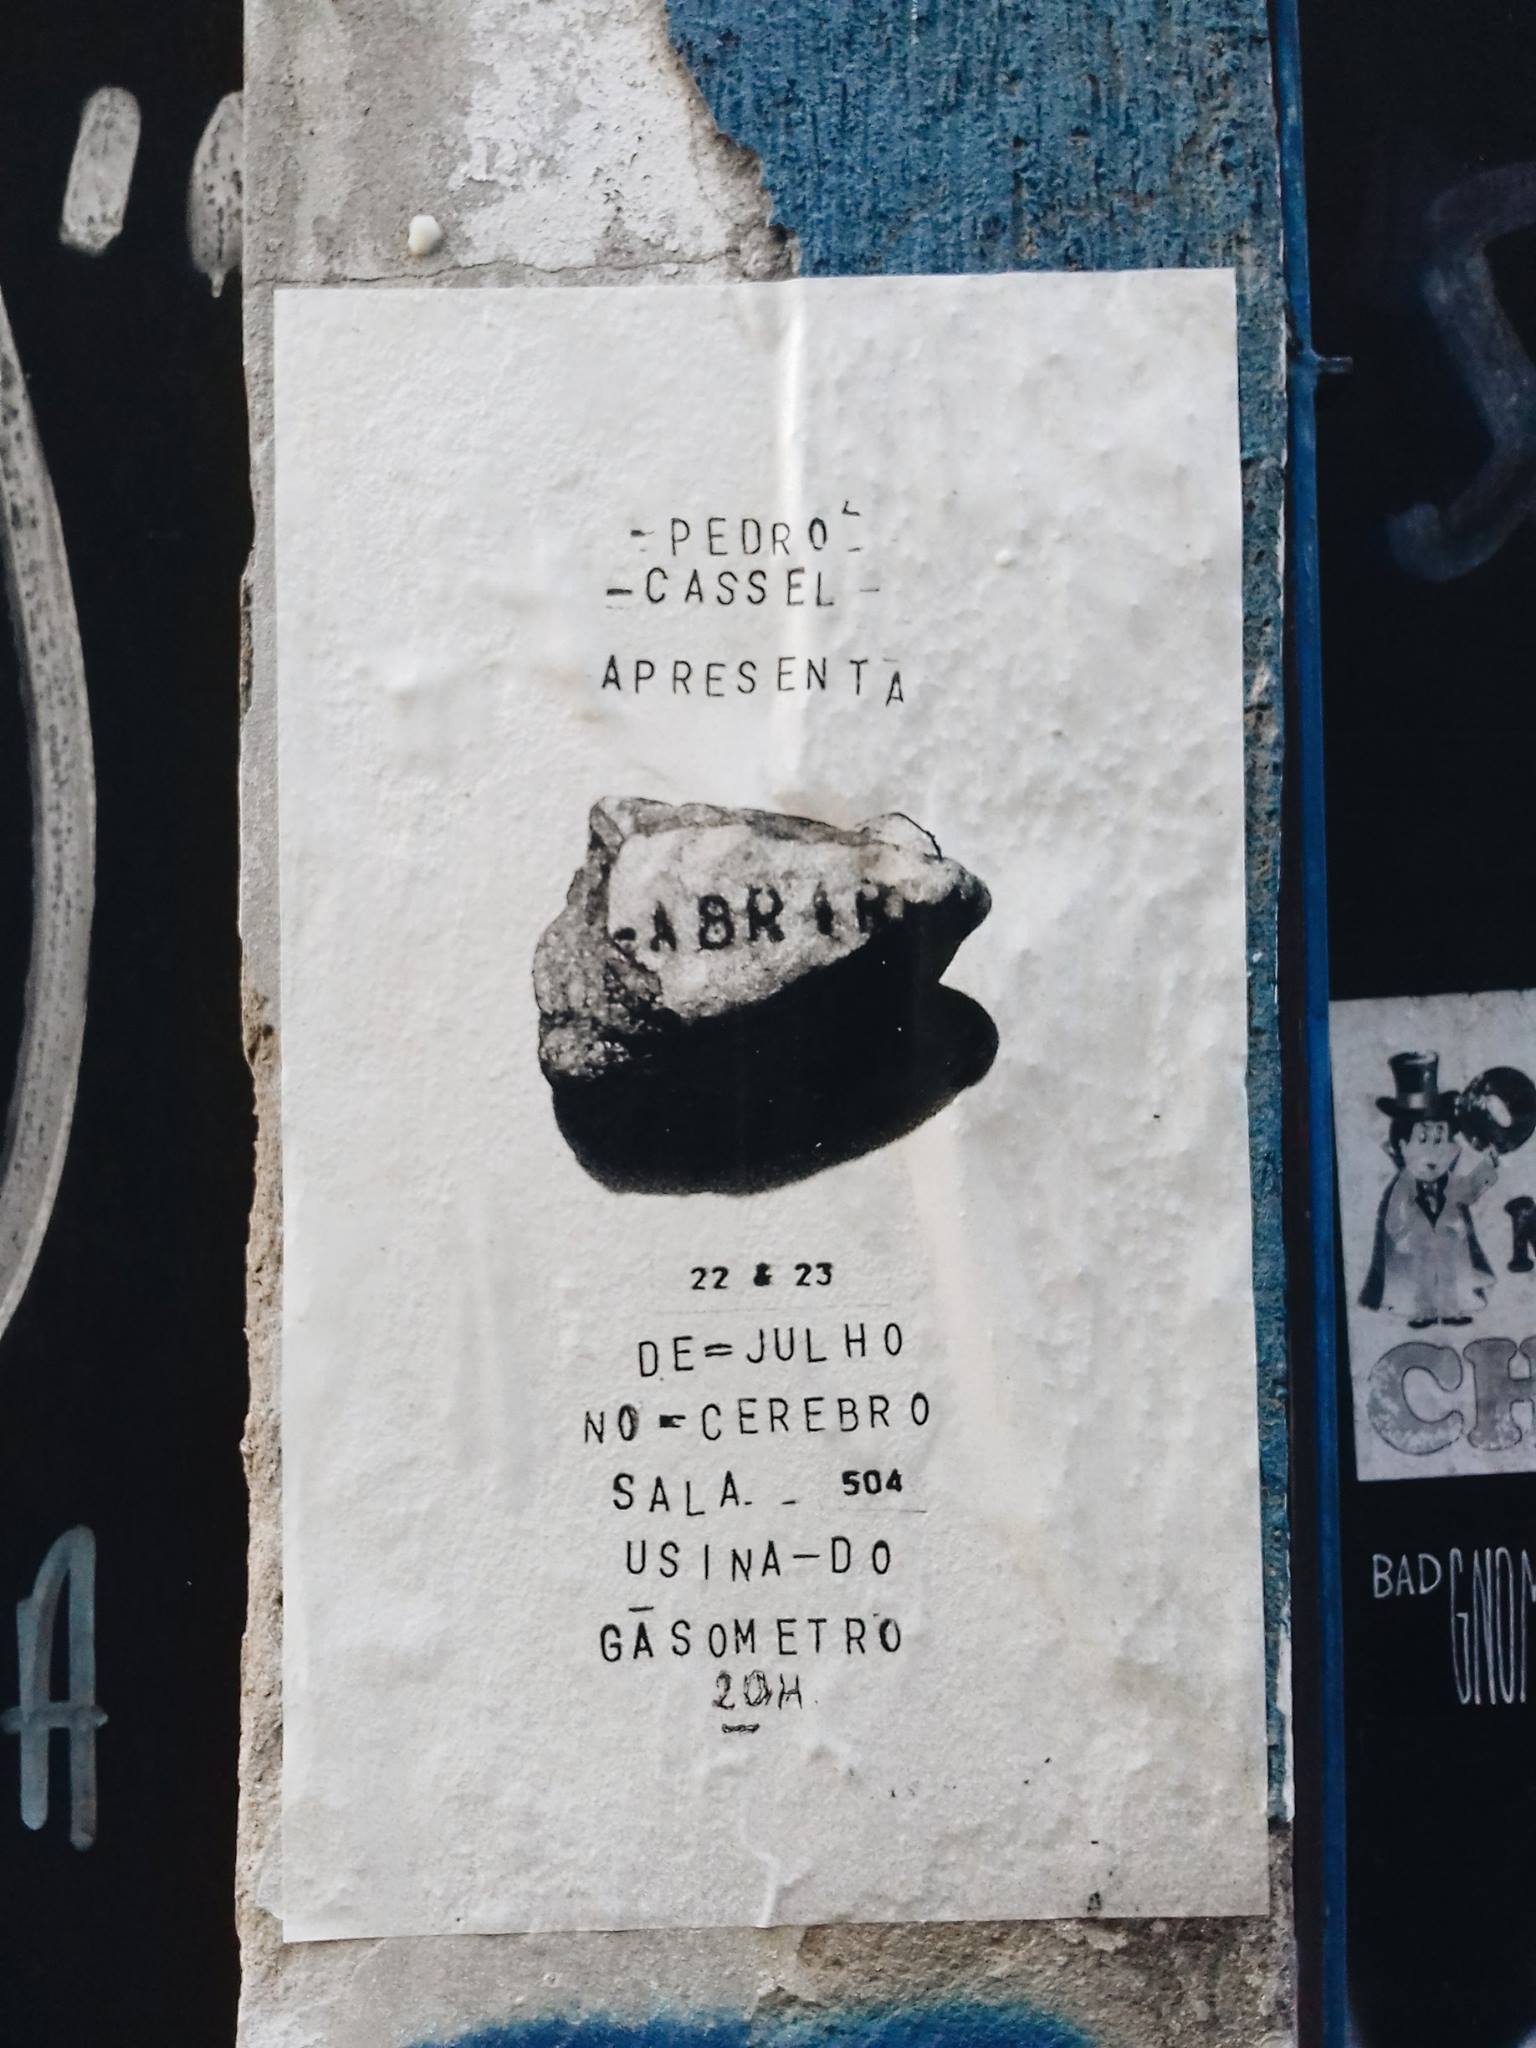 -PEDRO-
-CASSEL-
APRESENTA
-ABRIR
22 & 23
DE=JULHO
NO=CEREBRO
SALA.- 504
USINA-DO
GASOMETRO
20H.
CH
BAD
A